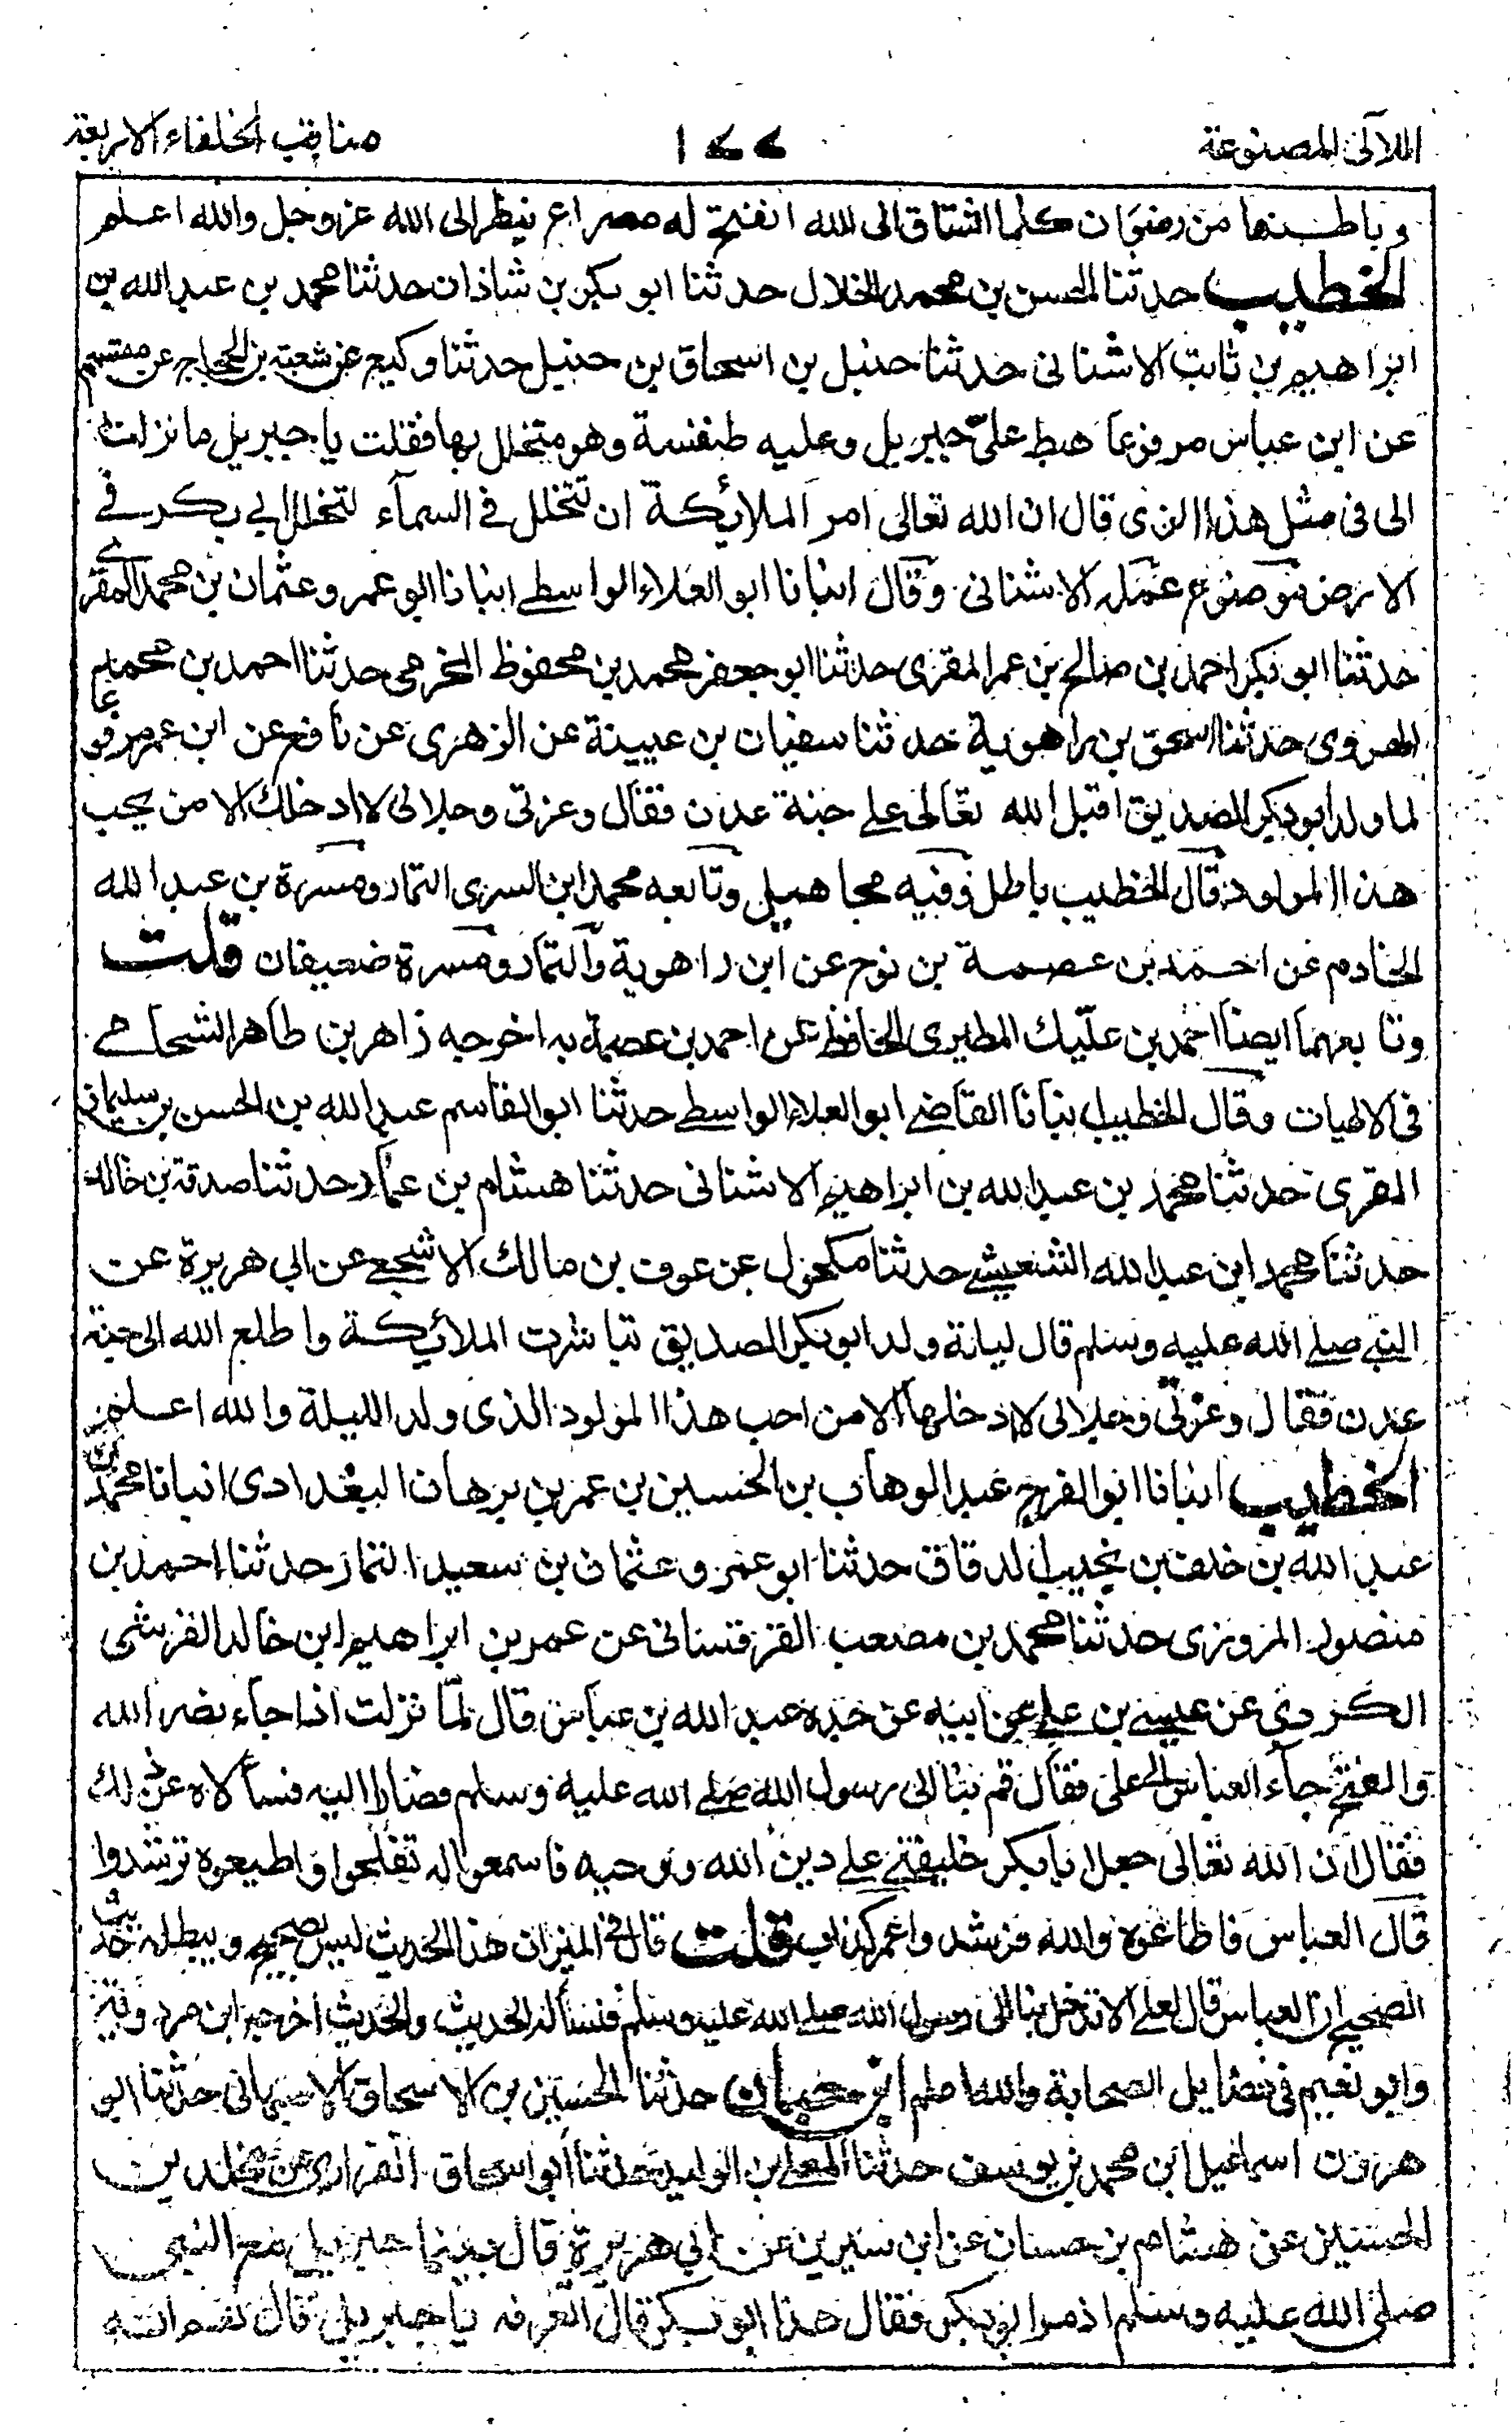 اللآلئ المصنوعة
١٧٧
مناقب الخلفاء الاربعة
وباطنها من رضوان كلما اشتاق الى الله انفتح له مصراع ينظر الى الله عز وجل والله اعلم
الخطيب حدثنا الحسن بن محمد الخلال حدثنا ابو بكر بن شاذان حدثنا محمد بن عبد الله بن
ابراهيم بن ثابت الاشنانى حدثنا حنبل بن اسحاق بن حنبل حدثنا وكيع عن شعبة بن الحجاج عن مقسم
عن ابن عباس مرفوعا هبط علىّ جبريل وعليه طنفسة وهو متخلل بها فقلت يا جبريل ما نزلت
الى فى مثل هذا الزى قال ان الله تعالى امر الملائكة ان تتخلل فى السمآء لتخلل ابي بكر فے
الارض موضوع عمله الاشنانى وقال انبانا ابو العلاء الواسطے انبانا ابو عمرو عثمان بن محمد المقرى
حدثنا ابو بكر احمد بن صالح بن عمر المقرى حدثنا ابو جعفر محمد بن محفوظ المخرمى حدثنا احمد بن محمد
الهروى حدثنا اسحق بن راهوية حدثنا سفيان بن عيينة عن الزهرى عن نافع عن ابن عمر مرفوعا
لما ولد ابو بكر الصديق اقبل الله تعالى على جنة عدن فقال وعزتى وجلالى لا ادخلك الا من يحب
هذا المولود قال الخطيب باطل وفيه مجاهيل وتابعه محمد ابن السرى التمار ومسرة بن عبد الله
الخادم عن احمد بن عصمة بن نوح عن ابن راهوية والتمار ومسرة ضعيفان قلت
وتابعهما ايضا احمد بن عليك المطيرى الحافظ عن احمد بن عصمة به اخرجه زاهر بن طاهر الشحامے
فى الالهيات وقال الخطيب نبانا القاضے ابو العلاء الواسطے حدثنا ابو القاسم عبد الله بن الحسن بن سليمان
المقرى حدثنا محمد بن عبد الله بن ابراهيم الاشنانى حدثنا هشام بن عمار حدثنا صدقة بن خالد
حدثنا محمد ابن عبد الله الشعيثے حدثنا مكحول عن عوف بن مالك الاشجعے عن ابي هريرة عن
النبے صلے الله عليه وسلم قال ليلة ولد ابو بكر الصديق تباشرت الملائكة واطلع الله الى جنة
عدن فقال وعزتى وجلالى لا ادخلها الا من احب هذا المولود الذى ولد الليلة والله اعلم
الخطيب انبانا ابو الفرج عبد الوهاب بن الحسين بن عمر بن برهان البغدادى انبانا محمد بن
عبد الله بن خلف بن بخيت الدقاق حدثنا ابو عمرو عثمان بن سعيد التمار حدثنا احمد بن
منصور المروزى حدثنا محمد بن مصعب القرقسانى عن عمر بن ابراهيم ابن خالد القرشى
الكردي عن عيسے بن علے عن ابيه عن جده عبد الله بن عباس قال لمّا نزلت اذا جاء نصر الله
والفتح جآء العباس الى على فقال قم بنا الى رسول الله صلے الله عليه وسلم فصارا اليه فسألاه عن ذلك
فقال ان الله تعالى جعل ابا بكر خليفتے علے دين الله ووحيه فاسمعوا له تفلحوا واطيعوه ترشدوا
قال العباس فاطاعوه والله فرشد واعمر كذاب قلت قال فى الميزان هذا الحديث ليس بصحيح ويبطله حديث
الصحيح ان العباس قال لعلى الا تدخل بنا الى رسول الله صلے الله عليه وسلم فنسأله الحديث والحديث اخرجه ابن مردوية
وابو نعيم فى فضايل الصحابة والله اعلم ابن حبان حدثنا الحسين بن الاسحاق الاصبهانى حدثنا ابو
هرون اسماعيل ابن محمد بن يوسف حدثنا المعلے ابن الوليد حدثنا ابو اسحاق الفزارى عن مخلد بن
الحسين عن هشام بن حسان عن ابن سيرين عن ابي هريرة قال بينما جبريل مع النبى
صلى الله عليه وسلم اذ مر ابو بكر فقال هذا ابو بكر قال اتعرفه يا جبريل قال نعم انه